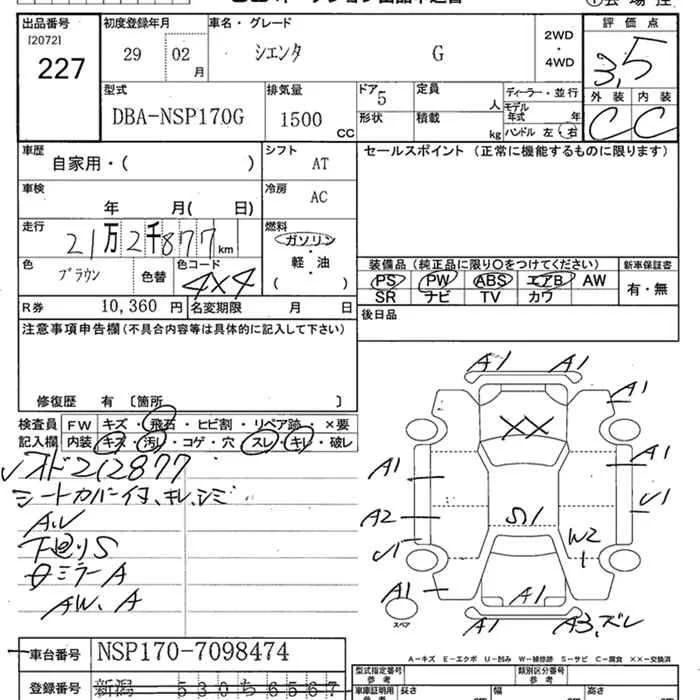 出品番号 初度登録年月 車名・グレード 評価点
[2072] 227
29 02 月 シエンタ G 2WD・4WD 3.5
型式 排気量 ドア 定員 ディーラー・並行 外装 内装
DBA-NSP170G 1500 CC 5 人 モデル年式 年 C C
形状 積載 kg ハンドル 左・右
車歴 シフト セールスポイント (正常に機能するものに限ります)
自家用・( ) AT
車検 冷房
年 月( 日) AC
走行 燃料
21万2千877km ガソリン・軽・油 ( )
色 ブラウン 色替 色コード 4X4
装備品 (純正品に限り○をつけてください) 新車保証書
PS PW ABS エアB AW 有・無
SR ナビ TV カワ
R券 10,360 円 名変期限 月 日
後日品
注意事項申告欄 (不具合内容等は具体的に記入して下さい)
修復歴 有 〔箇所 〕
検査員 FW キズ・飛石・ヒビ割・リペア跡・×要
記入欄 内装 キズ・汚レ・コゲ・穴・スレ・キレ・破レ
A1 A1
A1 A1
XX
オド212877
A1 A1
シートカバー付、キレ、シミ
A2 S1 U1
A.U
U1 W2
下廻りS
A1 A1
ミラーA
AW.A
A1 A3,ズレ
スペア
車台番号 NSP170-7098474
A-キズ E-エクボ U-凹み W-補修跡 S-サビ C-腐食 ××-交換済
登録番号 新潟 530 ち 6567
型式指定番号 参考 類別区分番号 参考
車庫証明用 長さ 幅 高さ